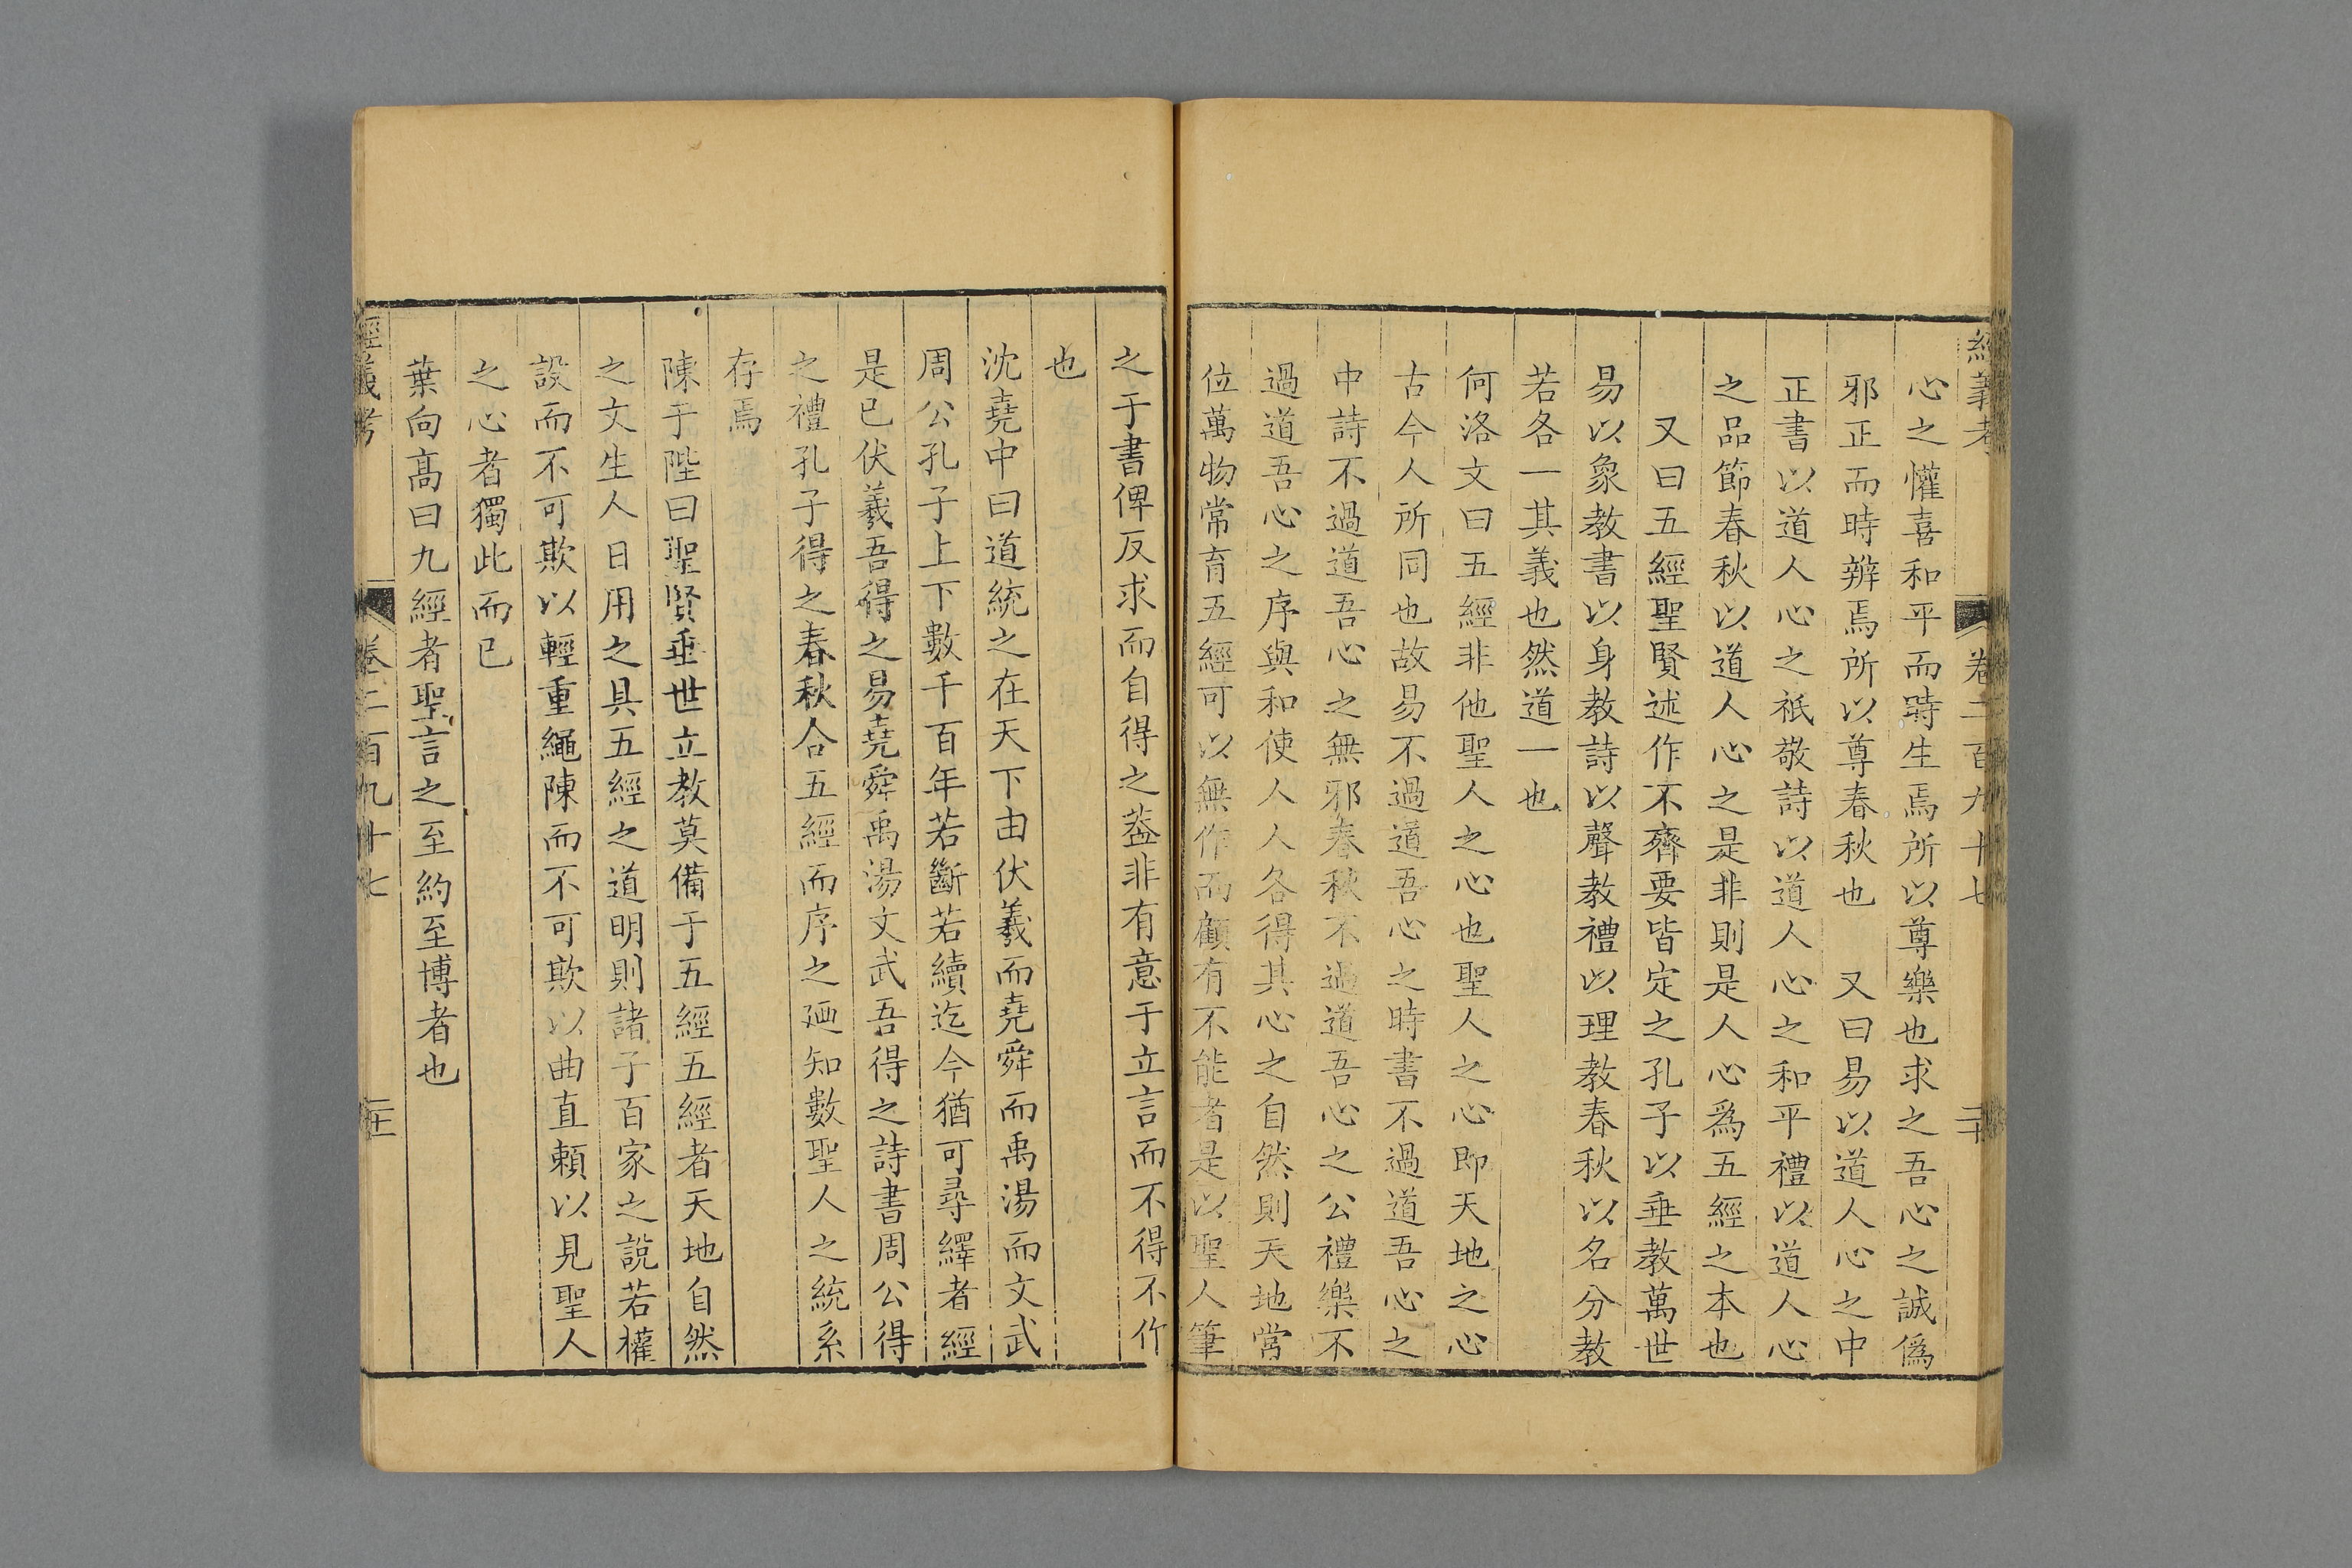 經義考 卷二百九十七 二十
心之懽喜和平而時生焉所以尊樂也求之吾心之誠僞
邪正而時辨焉所以尊春秋也 又曰易以道人心之中
正書以道人心之祗敬詩以道人心之和平禮以道人心
之品節春秋以道人心之是非則是人心爲五經之本也
又曰五經聖賢述作不齊要皆定之孔子以垂教萬世
易以象教書以身教詩以聲教禮以理教春秋以名分教
若各一其義也然道一也
何洛文曰五經非他聖人之心也聖人之心即天地之心
古今人所同也故易不過道吾心之時書不過道吾心之
中詩不過道吾心之無邪春秋不過道吾心之公禮樂不
過道吾心之序與和使人人各得其心之自然則天地常
位萬物常育五經可以無作而顧有不能者是以聖人筆
之于書俾反求而自得之葢非有意于立言而不得不作
也
沈堯中曰道統之在天下由伏羲而堯舜而禹湯而文武
周公孔子上下數千百年若斷若續迄今猶可尋繹者經
是已伏羲吾得之易堯舜禹湯文武吾得之詩書周公得
之禮孔子得之春秋合五經而序之廼知數聖人之統系
存焉
陳于陛曰聖賢垂世立教莫備于五經五經者天地自然
之文生人日用之具五經之道明則諸子百家之說若權
設而不可欺以輕重繩陳而不可欺以曲直賴以見聖人
之心者獨此而已
葉向高曰九經者聖言之至約至博者也
經義考 卷二百九十七 二十一